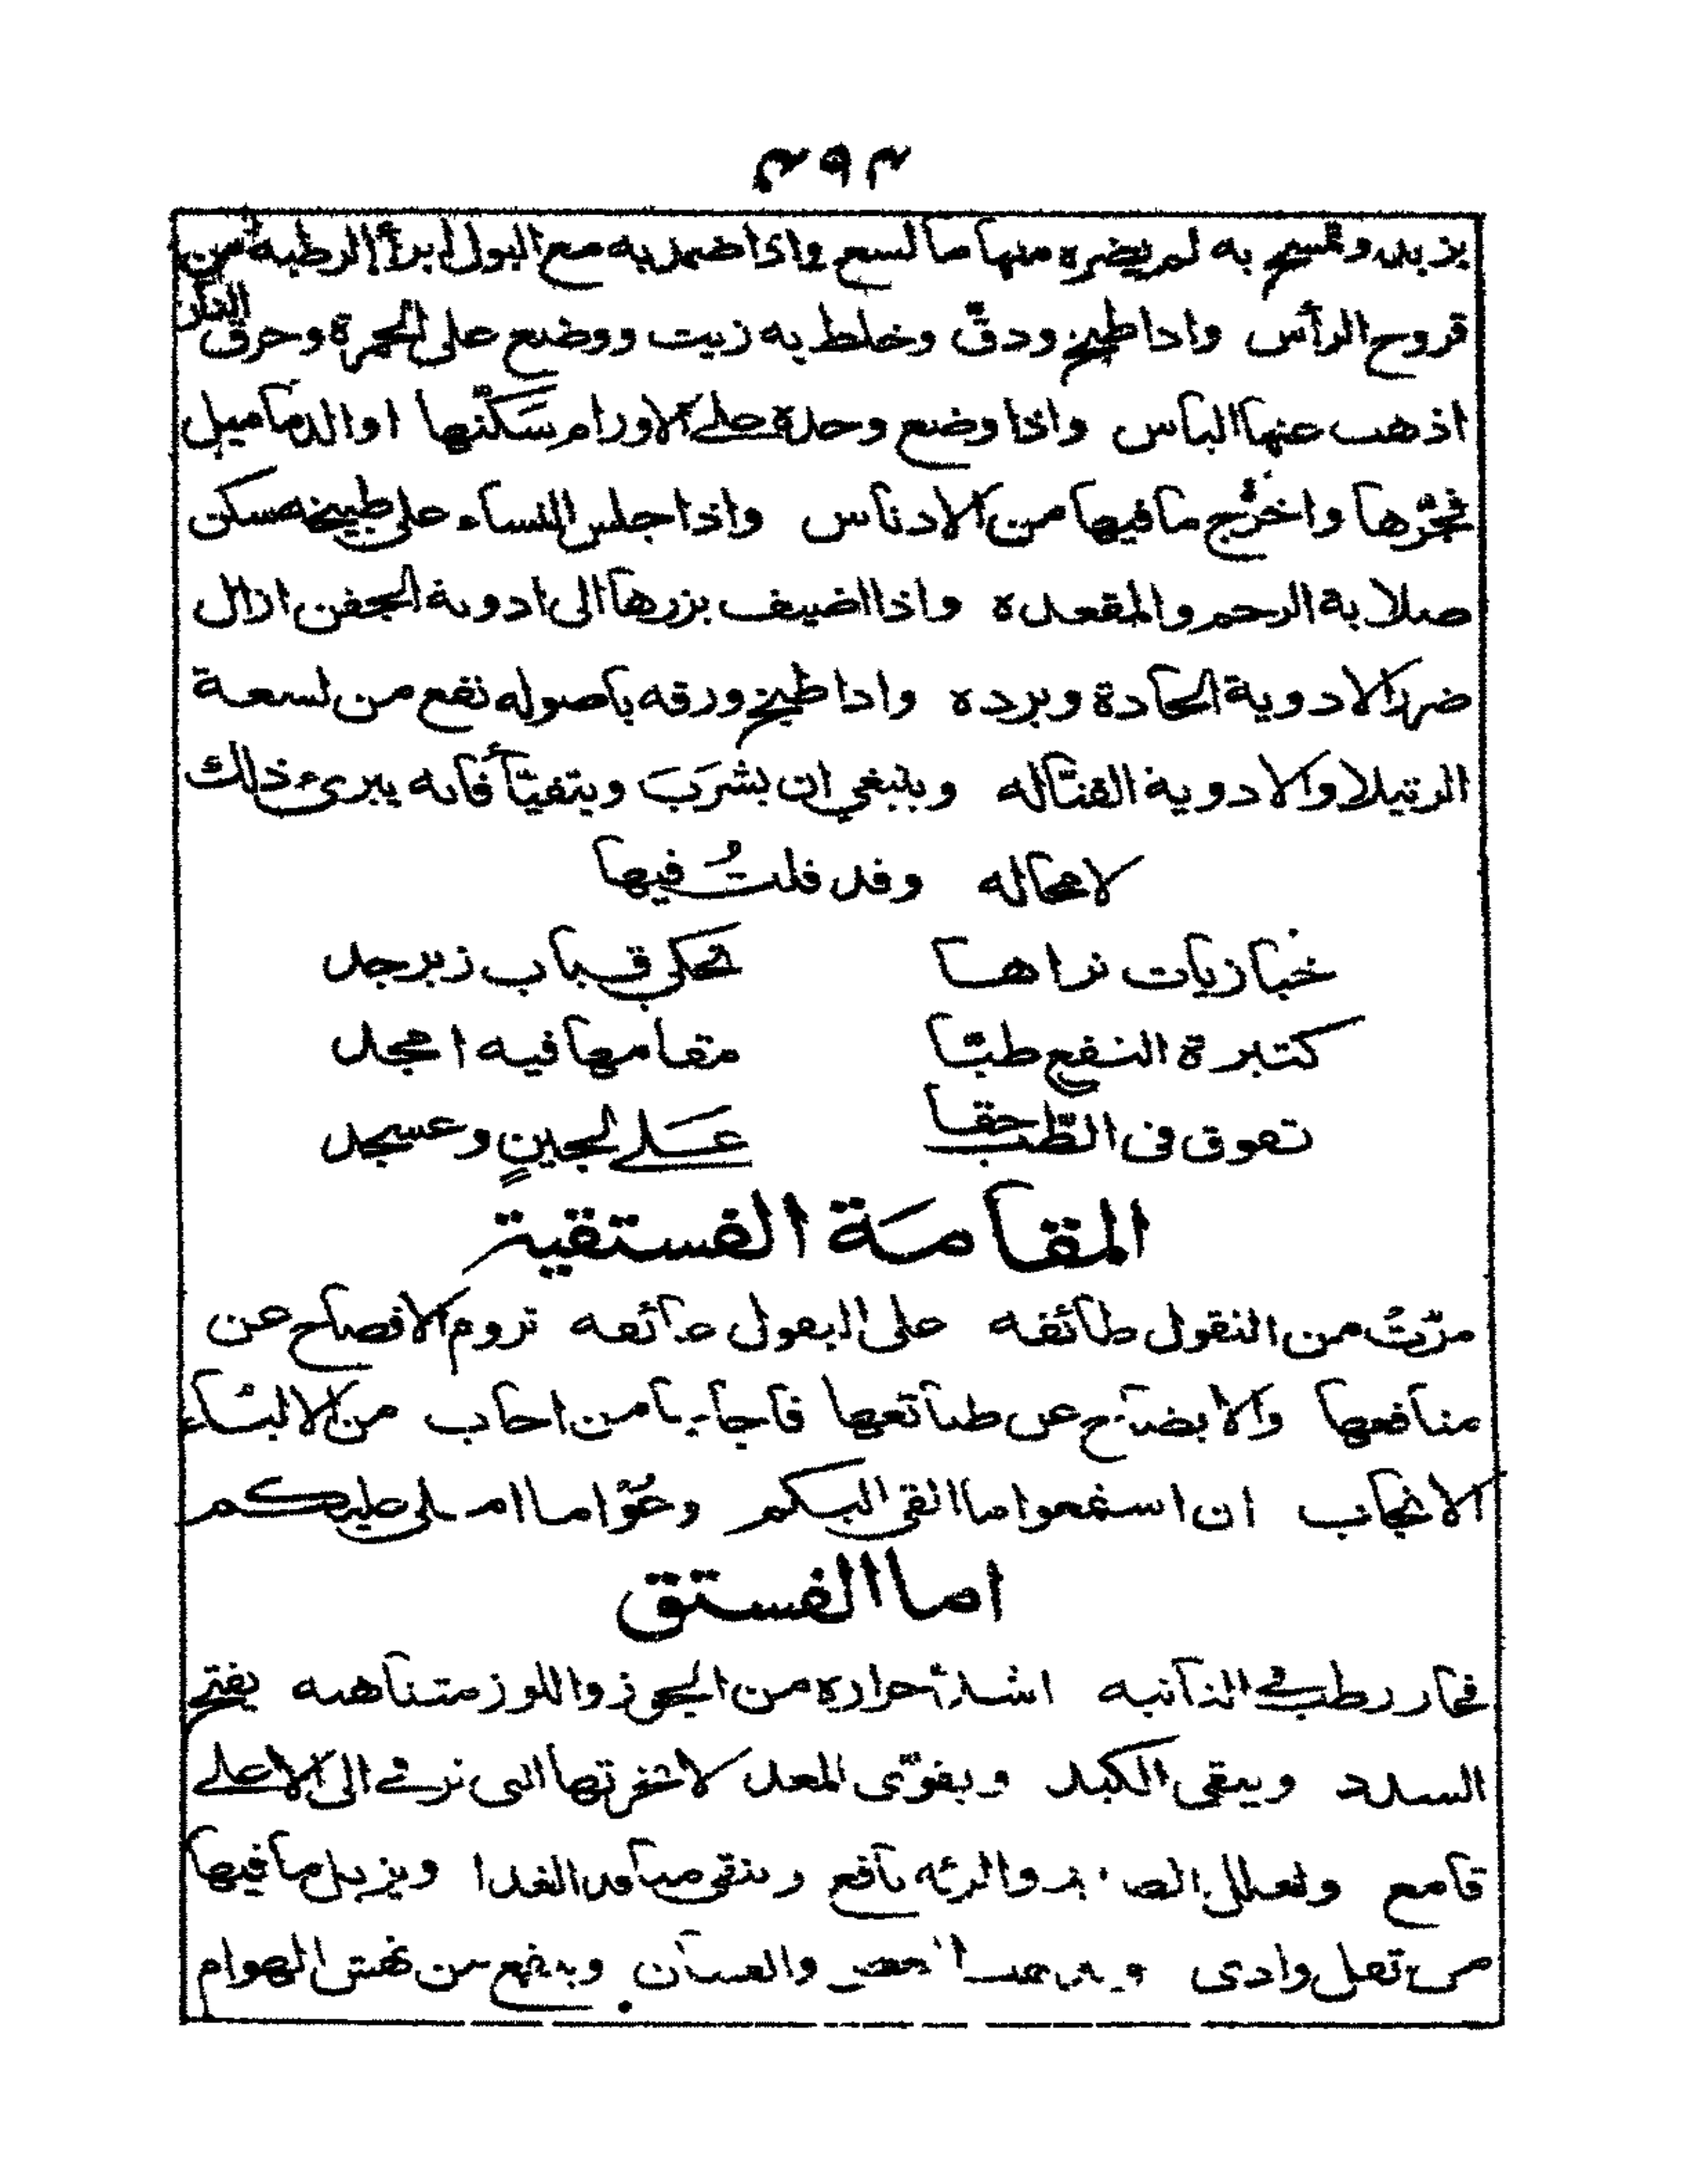 بزبد وتمسح به لم يضره منها ما لسع واذا ضمد به مع البول ابرأ الرطبة من
قروح الرأس واذا طبخ ودقّ وخلط به زيت ووضع على الجمرة وحرق النار
اذهب عنها الباس واذا وضع وحده على الاورام سَكّنها او الدماميل
فجّرها واخرج ما فيها من الادناس واذا جلس النساء على طبيخه سكن
صلابة الرحم والمقعده واذا اضيف بزرها الى ادوية الجفن ازال
ضرر الادوية الحادة وبرده واذا طبخ ورقه باصوله نفع من لسعة
الرتيلا والادوية القتّاله وينبغي ان يشرَبَ ويتقيّأ فانه يبرئ ذلك
لا محاله وقد قلتُ فيها
خبازيات تراها تحكى قباب زبرجد
كثيرة النفع طبّا مقامها فيه امجد
تفوق فى الطّب حقا عَلى لجينٍ وعسجد
المقامَة الفستقية
مرّتْ من النقول طائفه على البقول عائفه تروم الافصاح عن
منافعها والايضاح عن طبائعها فاجابها من اجاب من الالبّاء
الانجاب ان اسمعوا ما القى اليكم وعُوْا ما املى عليكم
اما الفستق
فحار رطب فى الثانيه اشدّ حراره من الجوز واللوز متناهيه يفتح
السدد وينقى الكبد ويقوّى المعد لا بخرتها التى ترقى الى الاعلى
قامع ولعلل الصدر والرئه نافع وينقى منافد الغدا ويزيل ما فيها
من ثقل واذى والغثيان وينفع من نهش الهوام